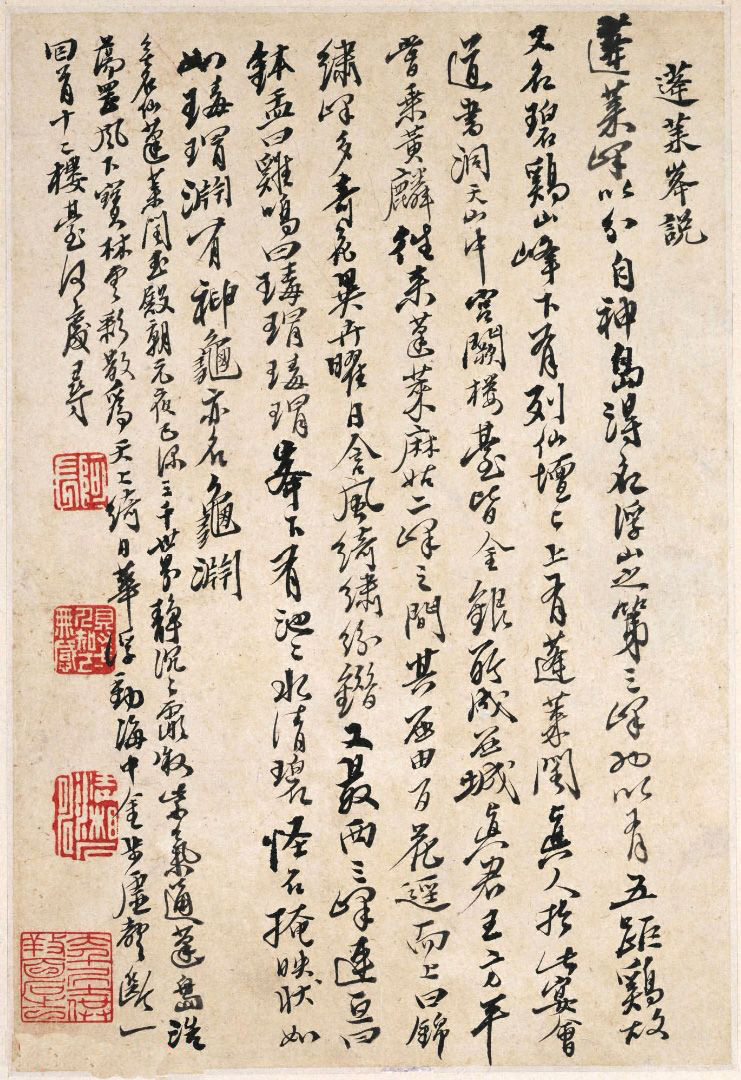 蓬萊峯説
蓬萊峰以分自神島得名浮山之第三峰也以有五距鷄故
又名碧鷄山峰下有列仙壇〻上有蓬萊閣真人於此宴會
道書洞天山中宮闕樓臺皆金銀所成茲城真君王方平
嘗乘黃麟往來蓬萊麻姑二峰之間其西由百花逕而上曰錦
繡峰多奇花異卉曜日含風綺繡紛錯又最西三峰連亘曰
鉢盂曰雞鳴曰瑇瑁瑇瑁峯下有池〻水清碧怪石掩映狀如
如瑇瑁淵有神龜亦名龜淵
仙蓬萊閣玉殿朝元夜正深三千世界靜沉〻霞嶽紫氣通蓬島浩
蕩罡風下寶林雲影散為天上綺日華浮動海中金步虛聲斷一
回首十二樓臺何處尋